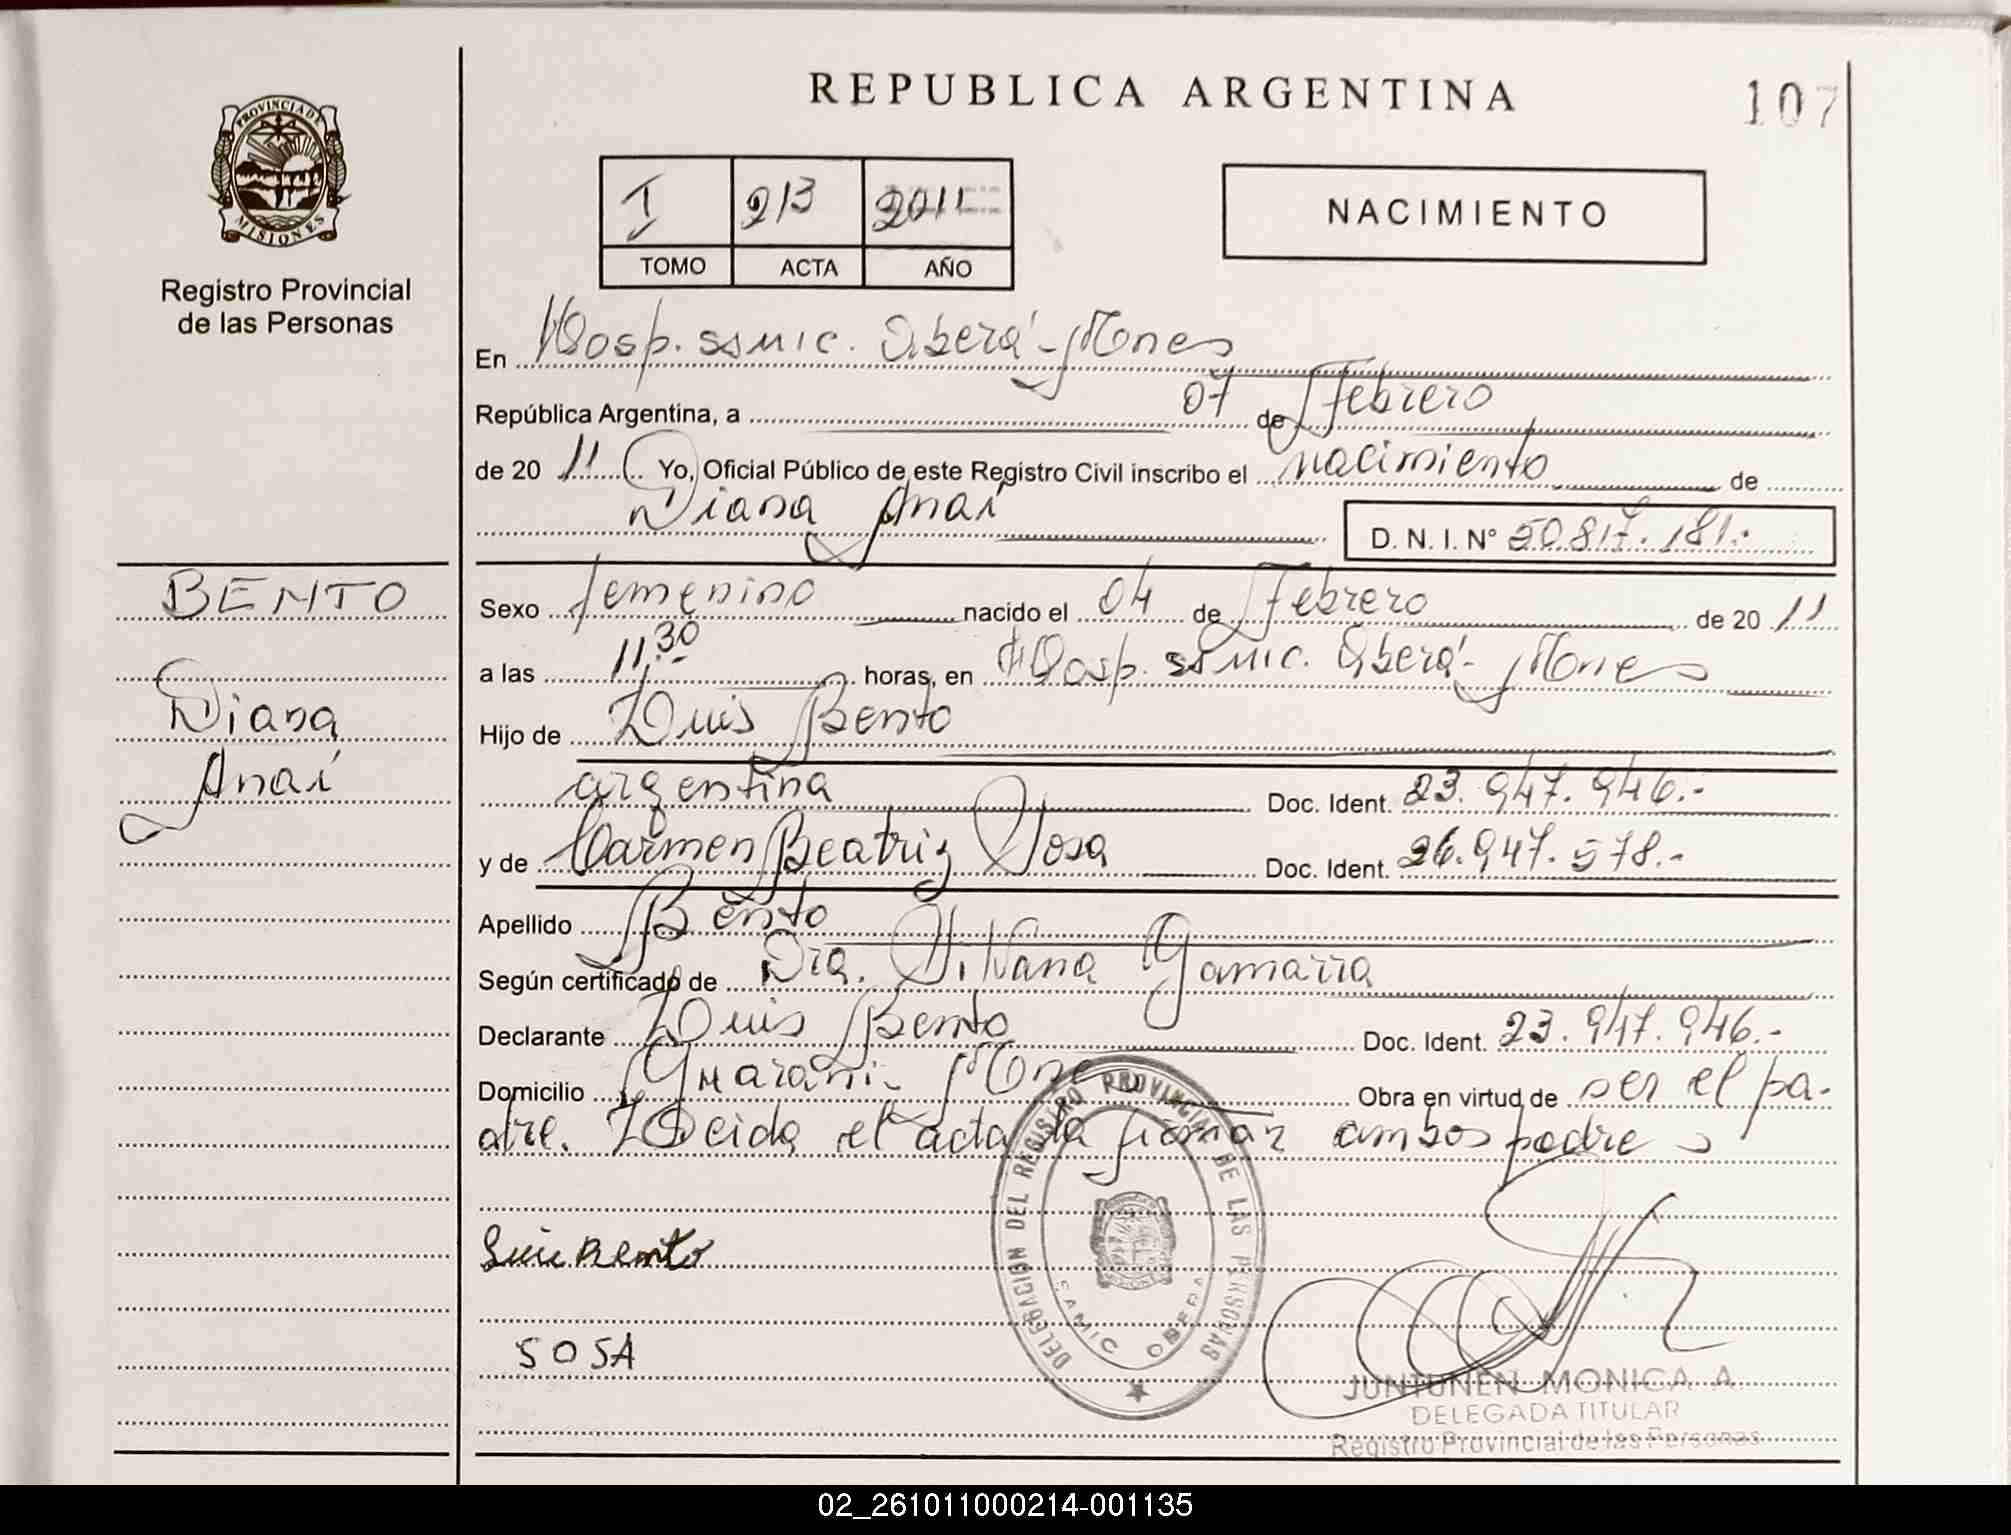 REPUBLICA ARGENTINA
107
PROVINCIA DE MISIONES
Registro Provincial
de las Personas
I 213 2011
TOMO ACTA AÑO
NACIMIENTO
En Hosp. ssmic. Oberá - Mones
República Argentina, a 07 de Febrero
de 20 11 Yo, Oficial Público de este Registro Civil inscribo el nacimiento de
Diana Anaí D. N. I. N° 50.817.181.-
BENTO
Diana
Anaí
Sexo femenino nacido el 04 de Febrero de 20 11
a las 11,30 horas, en Hosp. ssmic. Oberá - Mones
Hijo de Luis Bento
argentina Doc. Ident. 23.947.946.-
y de Carmen Beatriz Sosa Doc. Ident. 26.947.578.-
Apellido Bento
Según certificado de Dra. Silvana Gamarra
Declarante Luis Bento Doc. Ident. 23.947.946.-
Domicilio Guaraní - Mones Obra en virtud de ser el pa-
dre. Leida el acta la firman ambos padres
Luis Bento
SOSA
DELEGACION DEL REGISTRO PROVINCIAL DE LAS PERSONAS
SAMIC OBERA
JUNTUNEN MONICA A.
DELEGADA TITULAR
Registro Provincial de las Personas
02_261011000214-001135